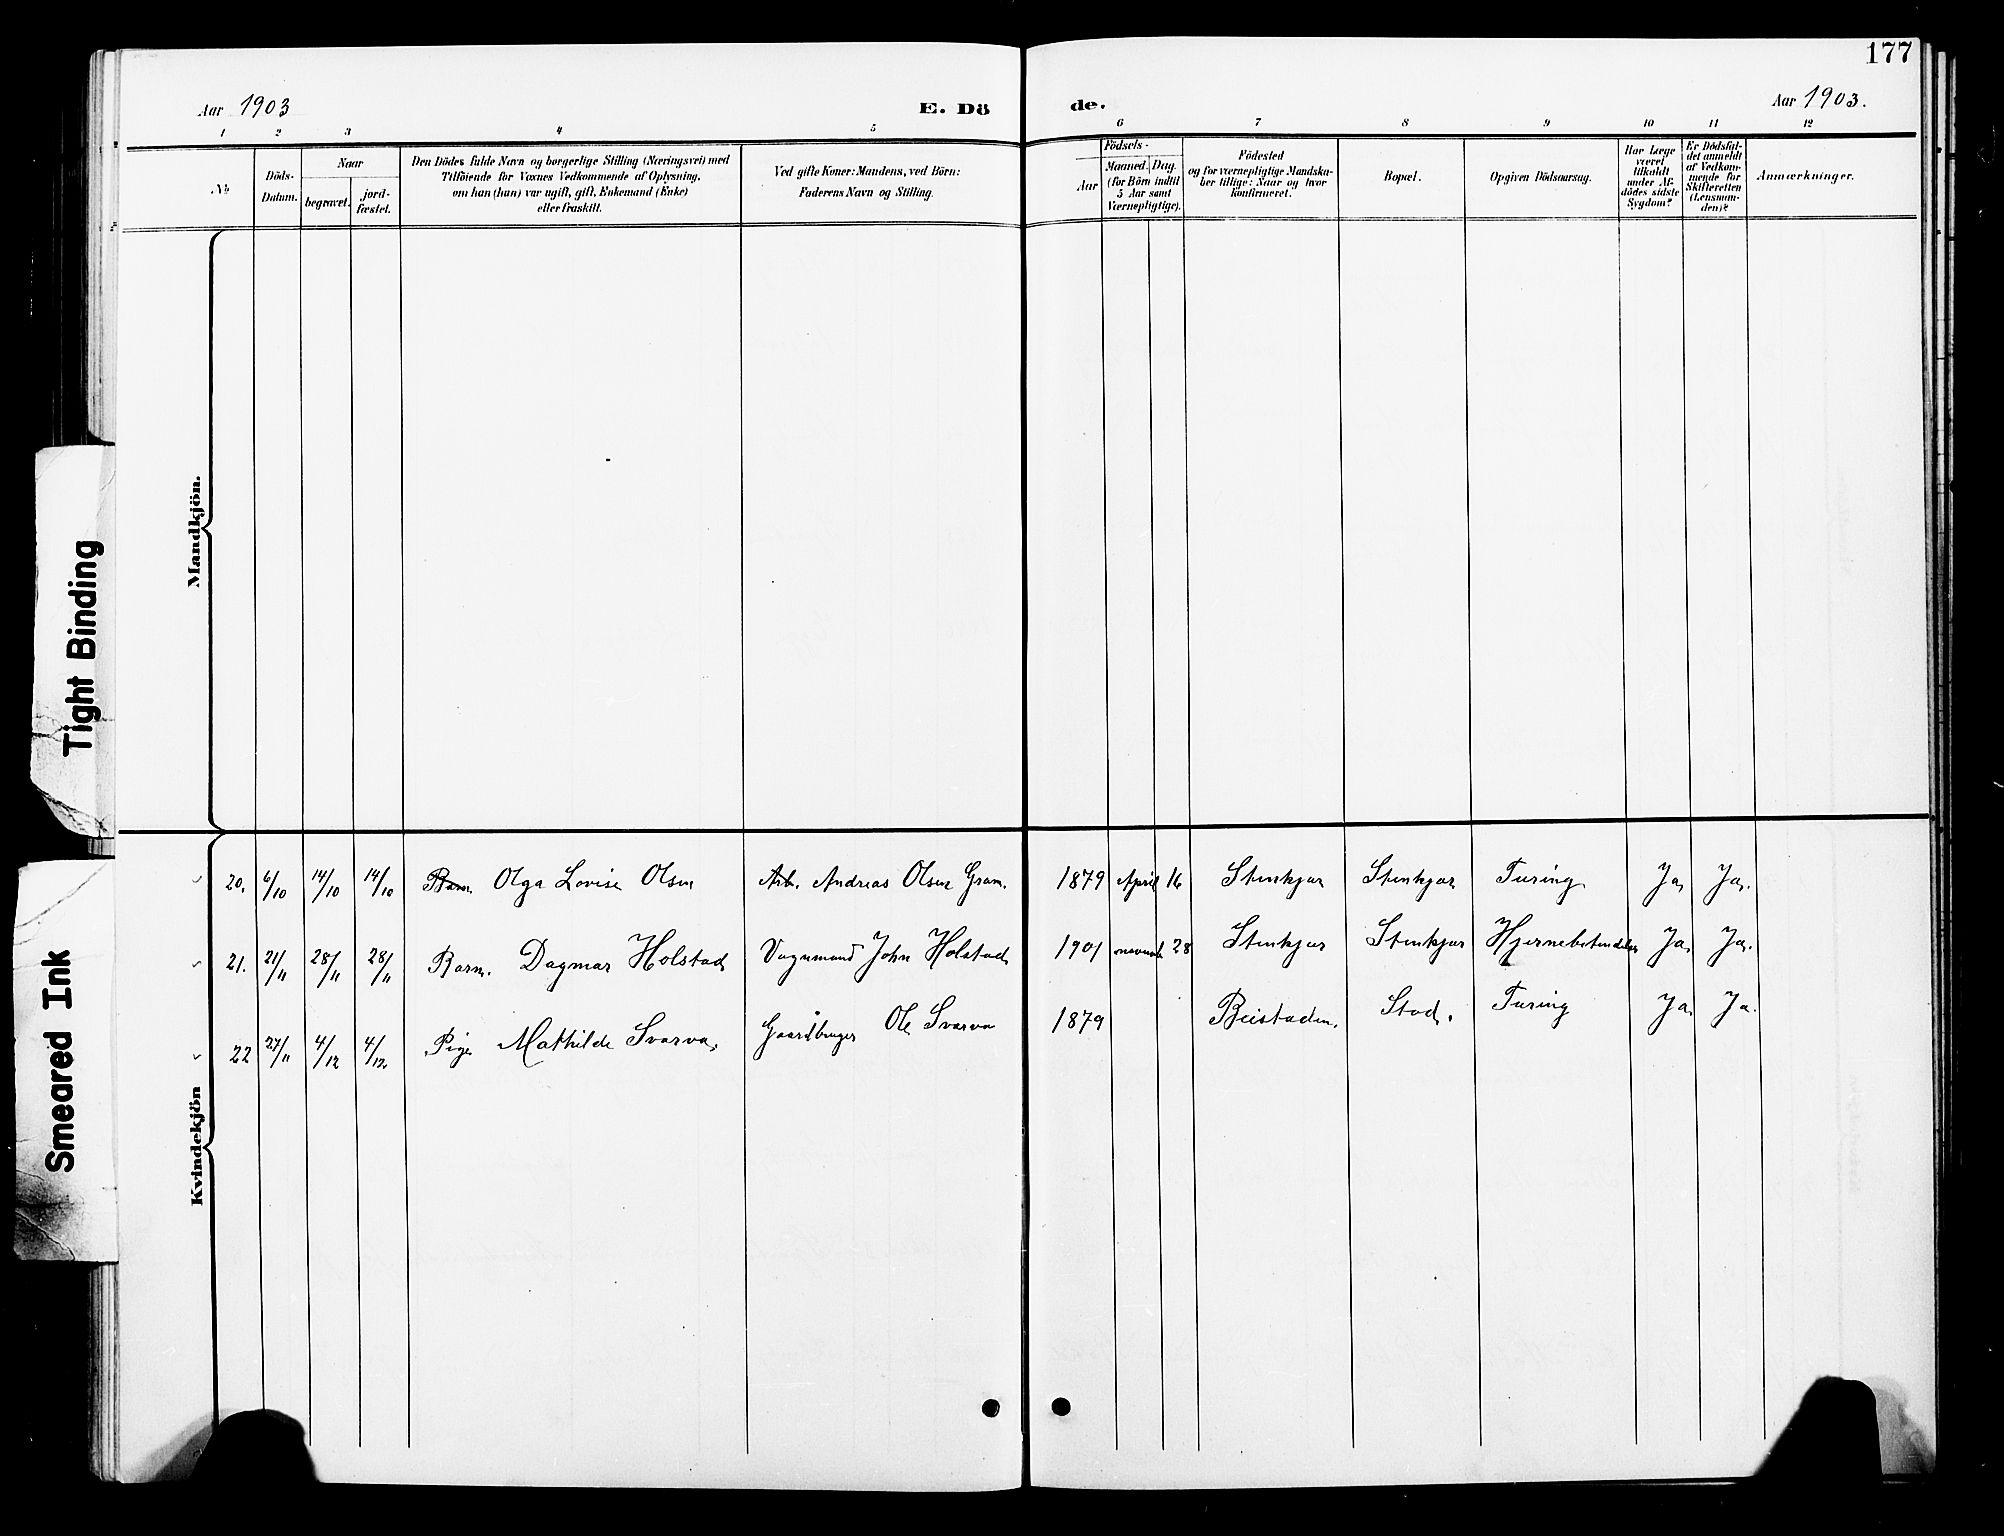 177
Aar 1903
E. Dö
de.
Aar 1903.
1 2 3 4 5 6 7 8 9 10 11 12
No
Döds-
Datum.
Naar
begravet.
jord-
fæstet.
Den Dödes fulde Navn og borgerlige Stilling (Næringsvei) med
Tilföiende for Voxnes Vedkommende af Oplysning,
om han (hun) var ugift, gift, Enkemand (Enke)
eller fraskilt.
Ved gifte Koner: Mandens, ved Börn:
Faderens Navn og Stilling.
Födsels-
Aar
Maaned.
Dag.
(for Börn indtil
5 Aar samt
Værnepligtige).
Födested
og for værnepligtige Mandska-
ber tillige: Naar og hvor
konfirmeret.
Bopæl.
Opgiven Dödsaarsag.
Har Læge
været
tilkaldt
under Af-
dödes sidste
Sygdom?
Er Dödsfal-
det anmeldt
af Vedkom-
mende for
Skifteretten
(Lensman-
den)?
Anmærkninger.
Mandkjön.
Kvindekjön
20. 6/10 14/10 14/10 Barn. Olga Lovise Olsen Arb. Andreas Olsen Gram. 1879 April 16 Stenkjær Stenkjær Turing Ja Ja.
21. 21/11 28/11 28/11 Barn. Dagmar Holstad Vognmand John Holstad 1901 novemb 28 Stenkjær Stenkjær Hjernebetendelse Ja Ja.
22 27/11 4/12 4/12 Pige Mathilde Svarva. Gaardbruger Ole Svarva 1879 Beistaden. Stod. Turing Ja Ja.
Tight Binding
Smeared Ink